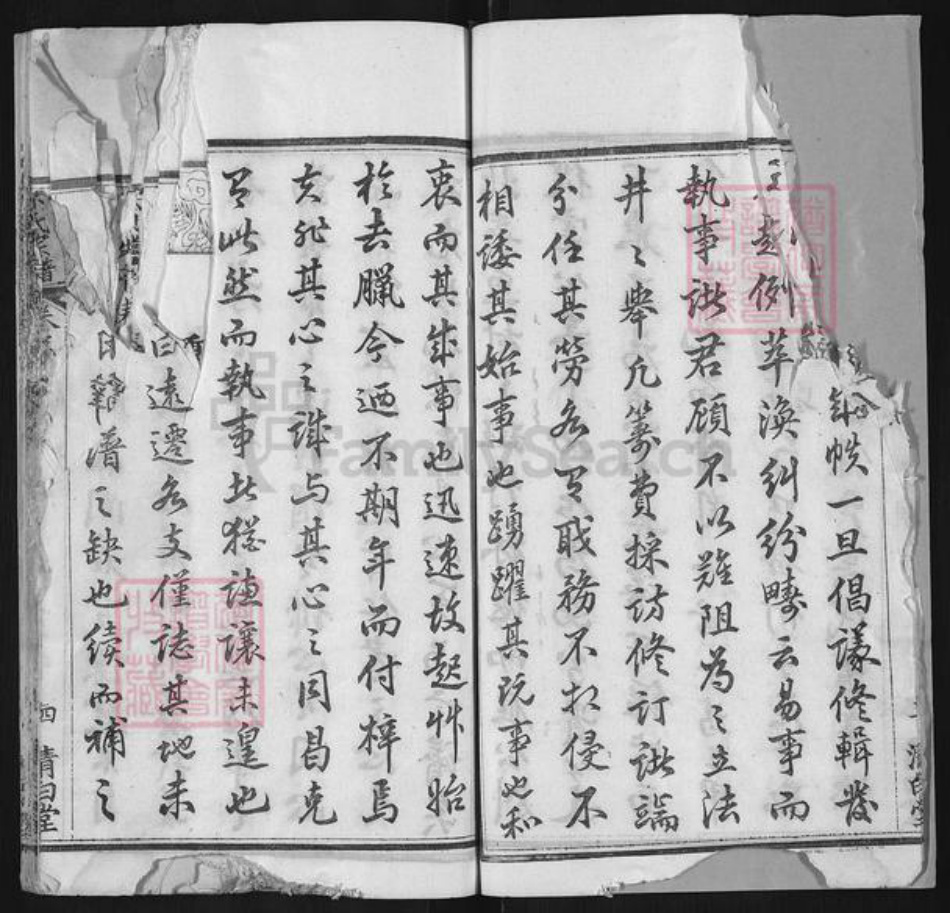 帙一旦倡議修輯發
起例萃渙糾紛疇云易事而
執事諸君顧不以難阻為之立法
井〻舉凡籌費採訪修訂諸端
分任其勞各有職務不相侵不
相諉其始事也踴躍其既事也和
衷而其成事也迅速故起艸始
於去臘今迺不期年而付梓焉
亥非其心之誠与其心之同曷克
有此然而執事者猶謙讓未遑也
曰遠遷各支僅誌其地未
譜之缺也續而補之
四 清白堂
FamilySearch